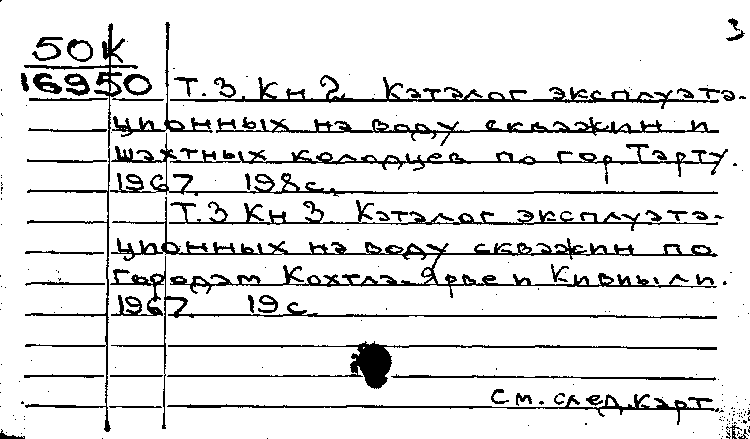 3
50К
16950 Т. 3. Кн. 2. Каталог эксплуата-
ционных на воду скважин и
шахтных колодцев по гор. Тарту.
1967. 198 с.
Т. 3 Кн 3. Каталог эксплуата-
ционных на воду скважин по
городам Кохтла-Ярве и Кивиыли.
1967. 19 с.
см. след. карт.